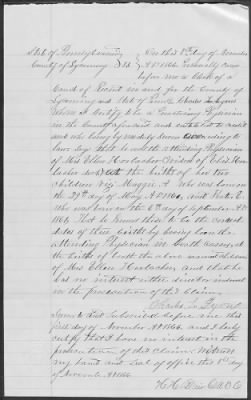 State of Pennsylvania On this 1st day of November
County of Lycoming SS AD 1866 Personally came
before me a Clerk of a
Court of Record in and for the County of
Lycoming and State of Penna Charles L. Lyon
whom I Certify to be a Practicing Physician
in the County aforesaid and entitled to credit
and who being by me duly sworn according to
law say that he was the attending Physician
of Mrs Ellen Harbacher Widow of
at the births of her two
children Viz: Maggie A. who was born on
the 29th day of May AD 1860, and
who was born on the 6th day of September AD
1864. That he knows these to be the correct
dates of their births by being
attending Physician in both cases, at
the births of both the above named children
of Mrs Ellen Harbacher, and that he
has no interest either direct or indirect
in the prosecution of this Claim.
Charles L. Lyon
Sworn to and Subscribed before me this
first day of November AD 1866, and I hereby
certify that I have no interest in the
prosecution of this Claim. Witness
my hand and Seal of office this 1st day
of November AD 1866.